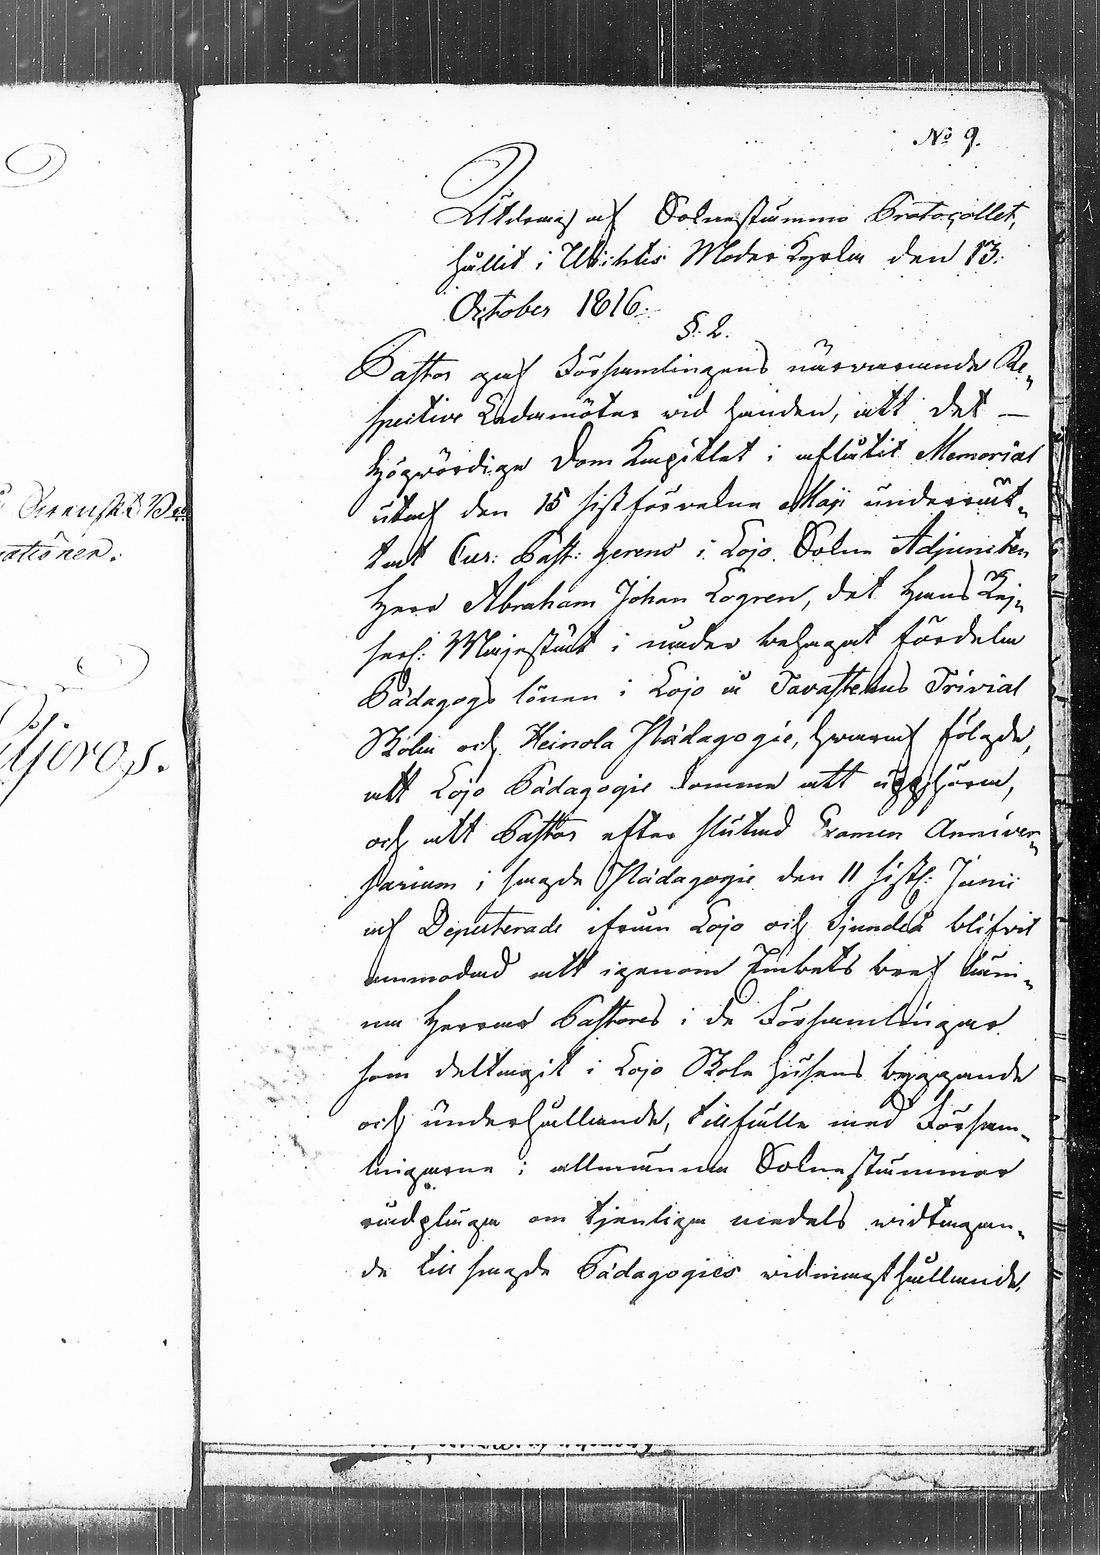 No 9.
Utdrag af Soknestämmo Protocollet,
hållit i Wichtis Moder Kyrka den 13.
October 1816.
§. 2.
Pastor gaf Församlingens närvarande Re-
spective Ledamöter vid handen, att det —
Högwördige Dom Kapitlet i aflåtit Memorial
utaf den 15 sistförvekne Maji underrät-
tat Cur: Past: gerens i Lojo Sokn Adjuncten
Herr Abraham Johan Logren, det Hans Kej-
serl: Majestät i nåder behagat fördela
Pädagogs lönen i Lojo å Tavastehus Trivial
Skola och Heinola Pädagogie, hvaraf följde,
att Lojo Pädagogie komme att upphöra,
och att Pastor efter slutad Examen Anniver-
sarium i sagde Pädagogie den 11 sistl: Junii
af Deputerade ifrån Lojo och Sjundeå blifvit
anmodad att igenom Embets bref lämna
na Herrar Pastores i de Församlingar
som deltagit i Lojo Skole husens byggande
och underhållande, tillfälle med Försam-
lingarne i allmänna Sokne stämmor
rådpläga om tjenliga medels widtagan-
de till sagde Pädagogies widmagthållande,
Svenskt
ationen.